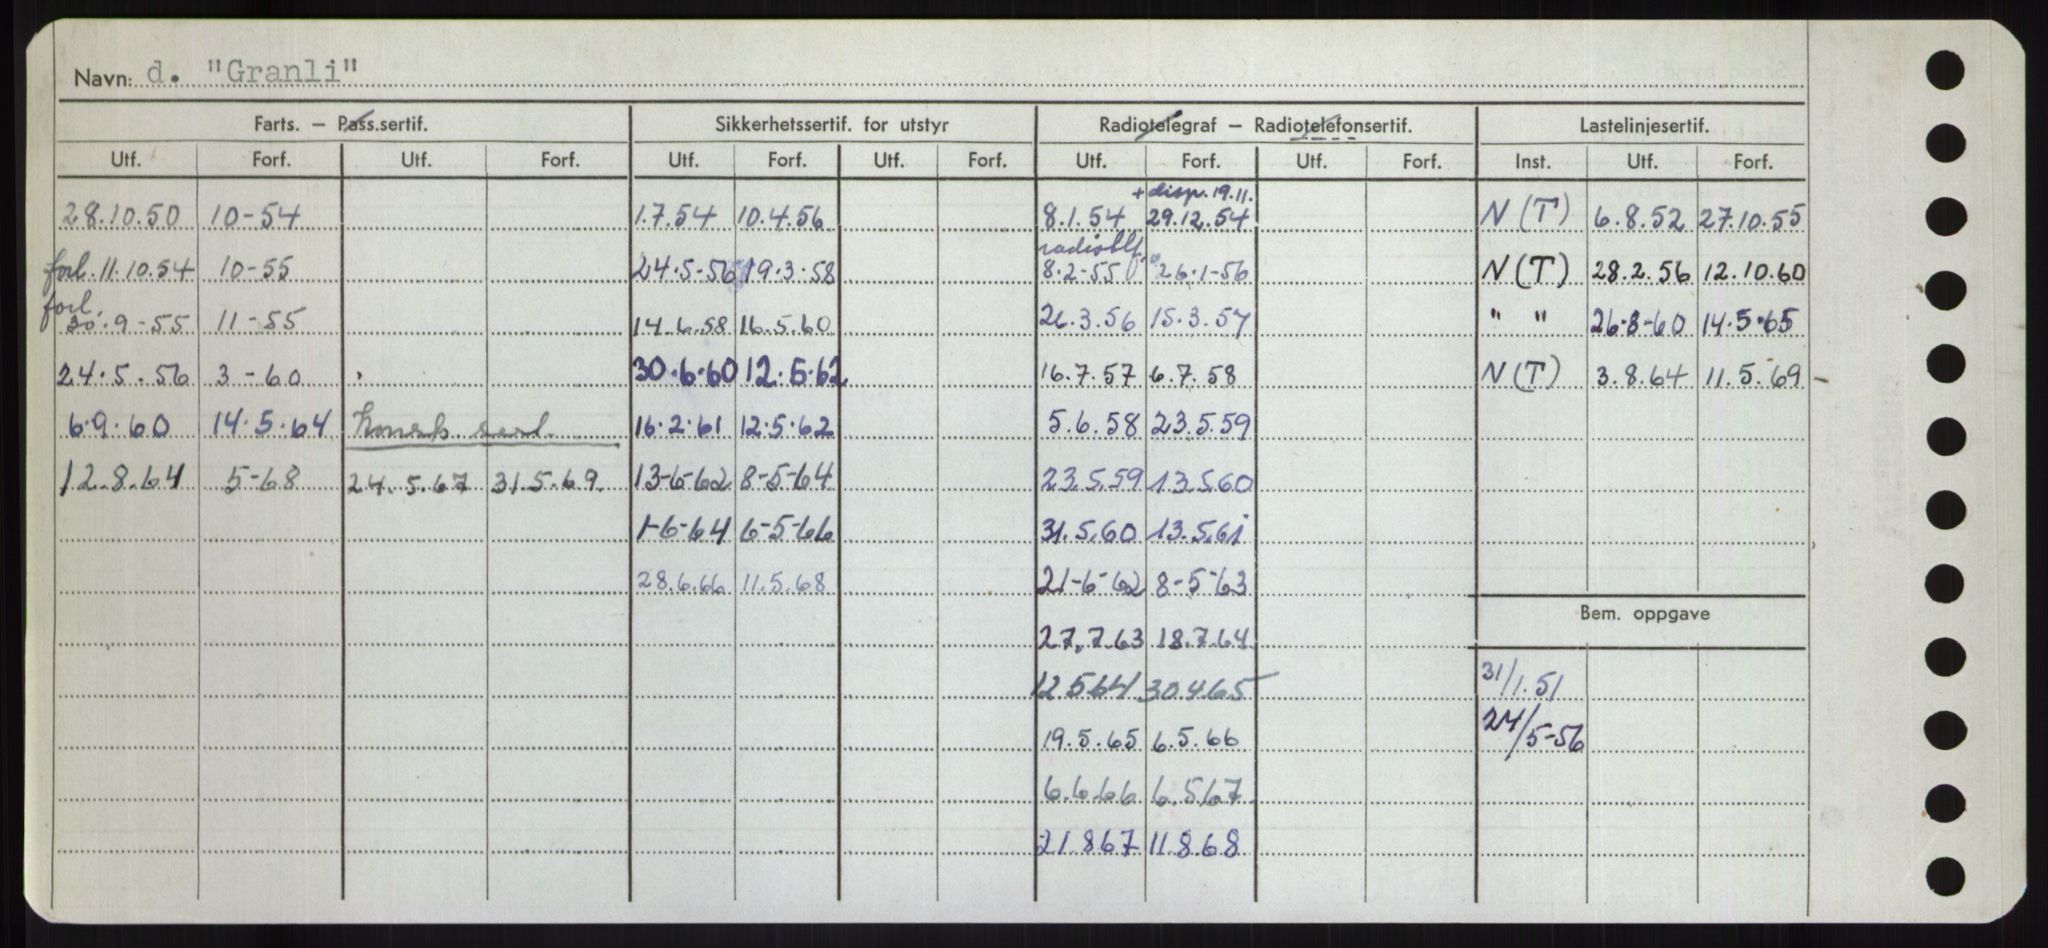 Navn: d. "Granli"
Farts. – Pass.sertif. Sikkerhetssertif. for utstyr Radiotelegraf – Radiotelefonsertif. Lastelinjesertif.
Utf. Forf. Utf. Forf. Utf. Forf. Utf. Forf. Utf. Forf. Utf. Forf. Inst. Utf. Forf.
+ disp. 19.11.
28.10.50 10-54 1.7.54 10.4.56 8.1.54 29.12.54 N(T) 6.8.52 27.10.55
forl. 11.10.54 10-55 24.5-56 19.3-58 8.2-55 26.1-56 N(T) 28.2.56 12.10.60
forl.
30.9-55 11-55 14.6.58 16.5.60 26.3.56 15.3.57 " " 26.8-60 14.5.65
24.5.56 3-60 30.6.60 12.5.62 16.7.57 6.7.58 N(T) 3.8.64 11.5.69
6.9.60 14.5.64 16.2.61 12.5.62 5.6.58 23.5.59
12.8.64 5-68 24.5.67 31.5.69 13-6-62 8-5-64 23.5.59 13.5.60
1-6-64 6-5-66 31.5.60 13.5.61
28.6.66 11.5.68 21-6-62 8-5-63
Bem. oppgave
27.7.63 18.7.64
12.5.64 30.4.65 31/1.51
19.5.65 6.5.66 24/5-56
6.6.66 6.5.67
21.8.67 11.8.68